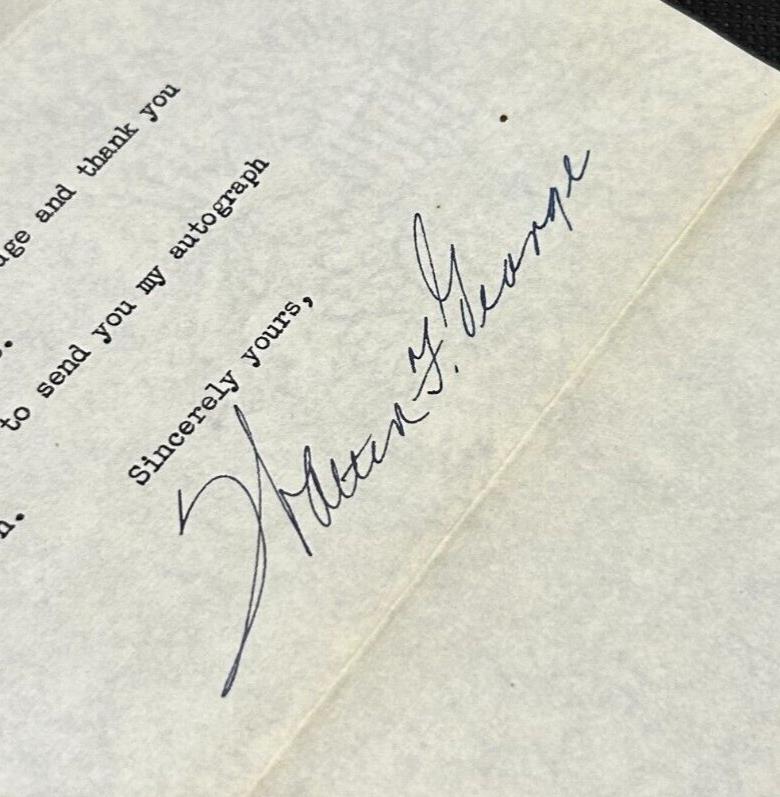 and thank you
to send you my autograph
Sincerely yours,
Walter F. George